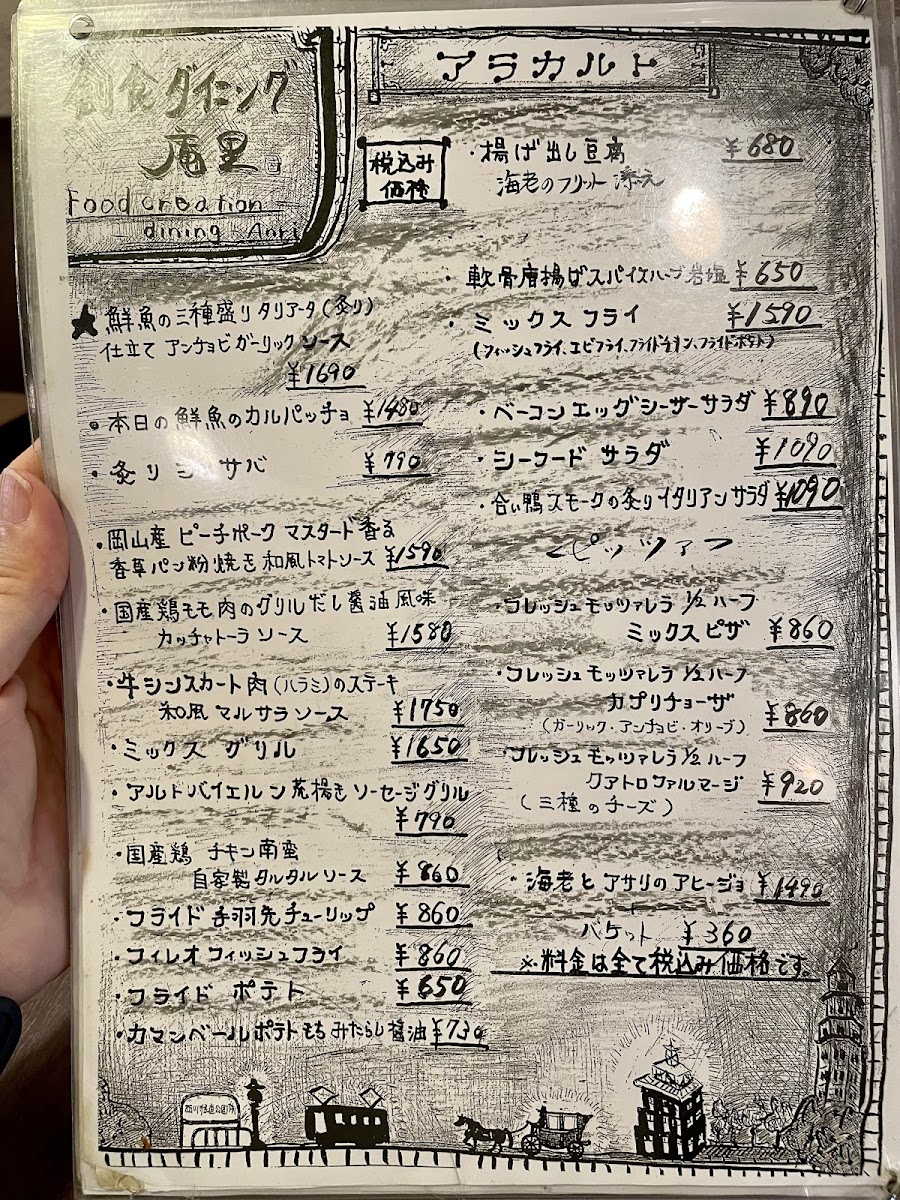 創食ダイニング
庵里
Food creation
dining Anri
アラカルト
税込み
価格
★鮮魚の三種盛りタリアータ(炙り)
仕立て アンチョビガーリックソース
¥1690
・本日の鮮魚のカルパッチョ ¥1480
・炙りシメサバ ¥790
・岡山産 ピーチポーク マスタード香る
香草パン粉焼き 和風トマトソース ¥1590
・国産鶏モモ肉のグリル だし醤油風味
カッチャトーラ ソース ¥1580
・牛シンスカート肉(ハラミ)のステーキ
和風 マルサラソース ¥1750
・ミックス グリル ¥1650
・アルドバイエルン荒挽きソーセージグリル
¥790
・国産鶏 チキン南蛮
自家製タルタルソース ¥860
・フライド手羽先チューリップ ¥860
・フィレオフィッシュフライ ¥860
・フライド ポテト ¥650
・カマンベールポテトもち みたらし醤油 ¥730
・揚げ出し豆腐 ¥680
海老のフリット 添え
・軟骨唐揚げスパイスハーブ岩塩 ¥650
・ミックス フライ ¥1590
(フィッシュフライ、エビフライ、フライドチキン、フライドポテト)
・ベーコンエッグシーザーサラダ ¥890
・シーフード サラダ ¥1090
・合い鴨スモークの炙りイタリアンサラダ ¥1090
ピッツァ
・フレッシュモッツァレラ 1/2 ハーフ
ミックスピザ ¥860
・フレッシュモッツァレラ 1/2 ハーフ
カプリチョーザ ¥860
(ガーリック・アンチョビ・オリーブ)
・フレッシュモッツァレラ 1/2 ハーフ
クアトロフォルマージ ¥920
(三種のチーズ)
・海老とアサリのアヒージョ ¥1490
+
バケット ¥360
※料金は全て税込み価格です。